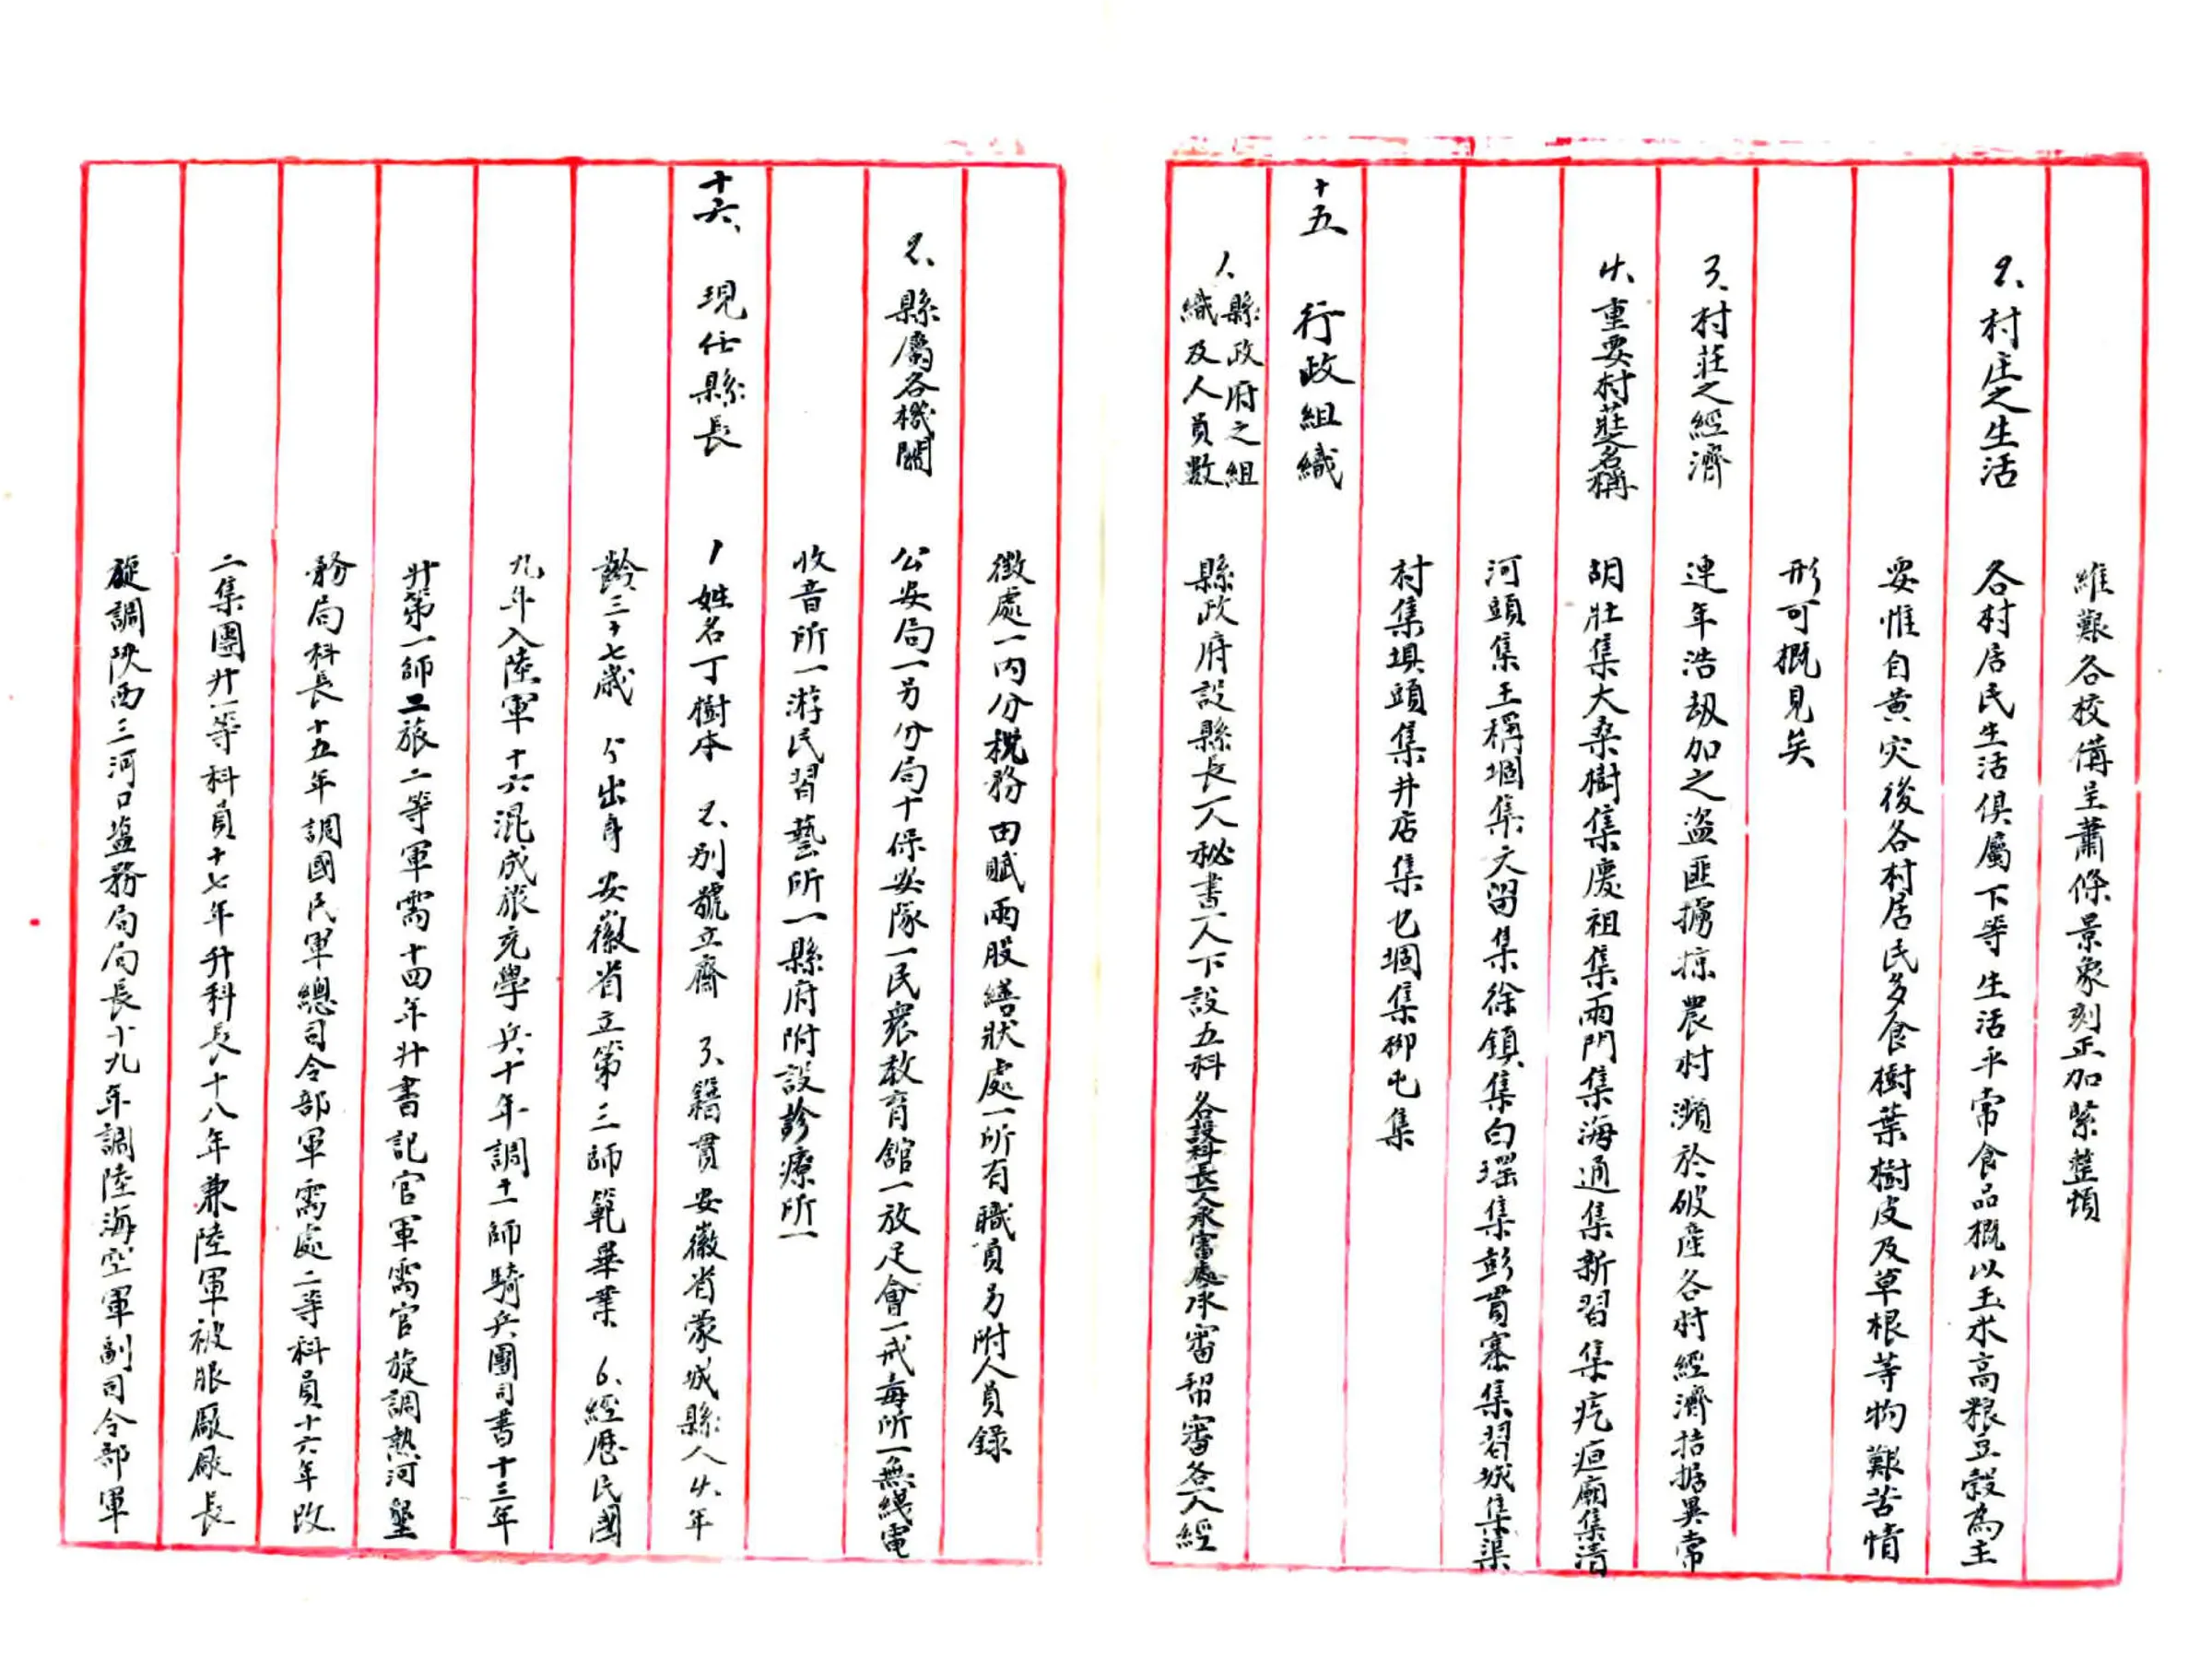 維艱各校備呈蕭條景象刻正加緊整頓
2、村庄之生活 各村居民生活俱屬下等生活平常食品概以玉米高粮豆穀為主
要惟自黄灾後各村居民多食樹葉樹皮及草根等物艱苦情
形可概見矣
3、村莊之經濟 連年浩劫加之盗匪擄掠農村瀕於破產各村經濟拮据異常
4、重要村莊之名稱 胡壯集大桑樹集慶祖集兩門集海通集新習集疙疸廟集清
河頭集王稱堌集文留集徐鎮集白堽集彭貫寨集習城集渠
村集垻頭集井店集屯堌集柳屯集
十五 行政組織
1、縣政府之組織及人員數 縣政府設縣長一人秘書一人下設五科各設科長一人承審處承審帮審各一人經
徵處一内分税務田賦兩股繕狀處一所有職員另附人員錄
2、縣屬各機關 公安局一另分局十保安隊一民衆教育舘一放足會一戒毒所一無綫電
收音所一游民習藝所一縣府附設診療所一
十六、現任縣長 1姓名丁樹本 2、别號立齋 3、籍貫安徽省蒙城縣人 4、年
齡三十七歲 5出身安徽省立第三師範畢業 6、經歷民國
九年入陸軍十六混成旅充學兵十年調十一師騎兵團司書十三年
升第一師二旅二等軍需十四年升書記官軍需官旋調熱河墾
務局科長十五年調國民軍總司令部軍需處二等科員十六年改
二集團升一等科員十七年升科長十八年兼陸軍被服廠廠長
旋調陝西三河口盐務局局長十九年調陸海空軍副司令部軍